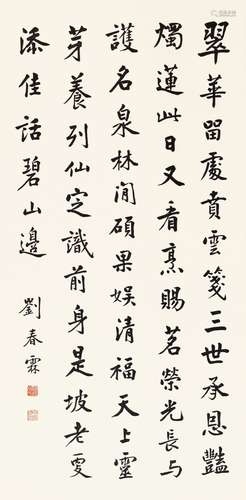 翠華留處賁雲箋三世承恩豔
燭蓮此日又看烹賜茗榮光長與
護名泉林間碩果娛清福天上靈
芽養列仙定識前身是坡老更
添佳話碧山邊
劉春霖